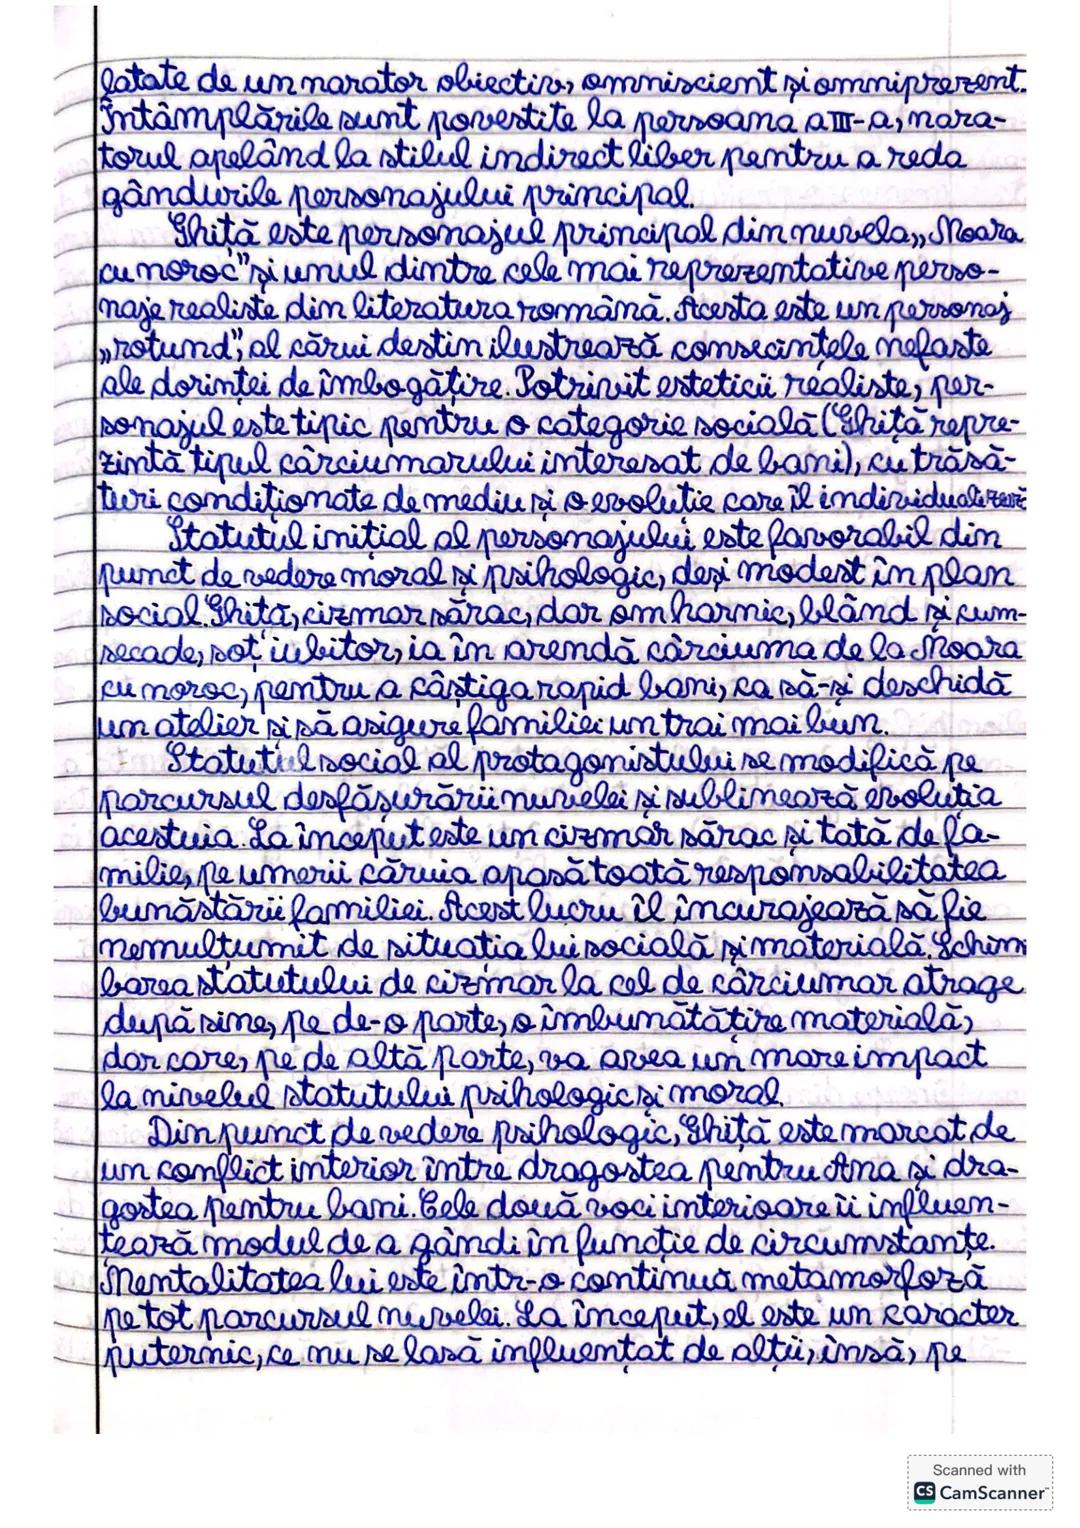 latate de un narator obiectiv, omniscient și omniprezent.
Întâmplările sunt povestite la persoana a III-a, nara-
torul apelând la stilul indirect liber pentru a reda
gândurile personajului principal.
Ghiță este personajul principal din nuvela „Moara
cu noroc” și unul dintre cele mai reprezentative perso-
naje realiste din literatura română. Acesta este un personaj
„rotund”, al cărui destin ilustrează consecințele nefaste
ale dorinței de îmbogățire. Potrivit esteticii realiste, per-
sonajul este tipic pentru o categorie socială (Ghiță repre-
zintă tipul cârciumarului interesat de bani), cu trăsă-
turi condiționate de mediu și o evoluție care îl individualizează
Statutul inițial al personajului este favorabil din
punct de vedere moral și psihologic, deși modest în plan
social. Ghiță, cizmar sărac, dar om harnic, blând și cum-
secade, soț iubitor, ia în arendă cârciuma de la Moara
cu noroc, pentru a câștiga rapid bani, ca să-și deschidă
un atelier și să asigure familiei un trai mai bun.
Statutul social al protagonistului se modifică pe
parcursul desfășurării nuvelei și sublinează evoluția
acestuia. La început este un cizmar sărac și tată de fa-
milie, pe umerii căruia apasă toată responsabilitatea
bunăstării familiei. Acest lucru îl încurajează să fie
nemulțumit de situația lui socială și materială. Schim
barea statutului de cizmar la cel de cârciumar atrage
după sine, pe de-o parte, o îmbunătățire materială,
dar care, pe de altă parte, va avea un mare impact
la nivelul statutului psihologic și moral.
Din punct de vedere psihologic, Ghiță este marcat de
un conflict interior între dragostea pentru Ana și dra-
gostea pentru bani. Cele două voci interioare îi influen-
țează modul de a gândi în funcție de circumstanțe.
Mentalitatea lui este într-o continuă metamorfoză
pe tot parcursul nuvelei. La început, el este un caracter
puternic, ce nu se lasă influențat de alții, însă, pe
Scanned with
CS CamScanner